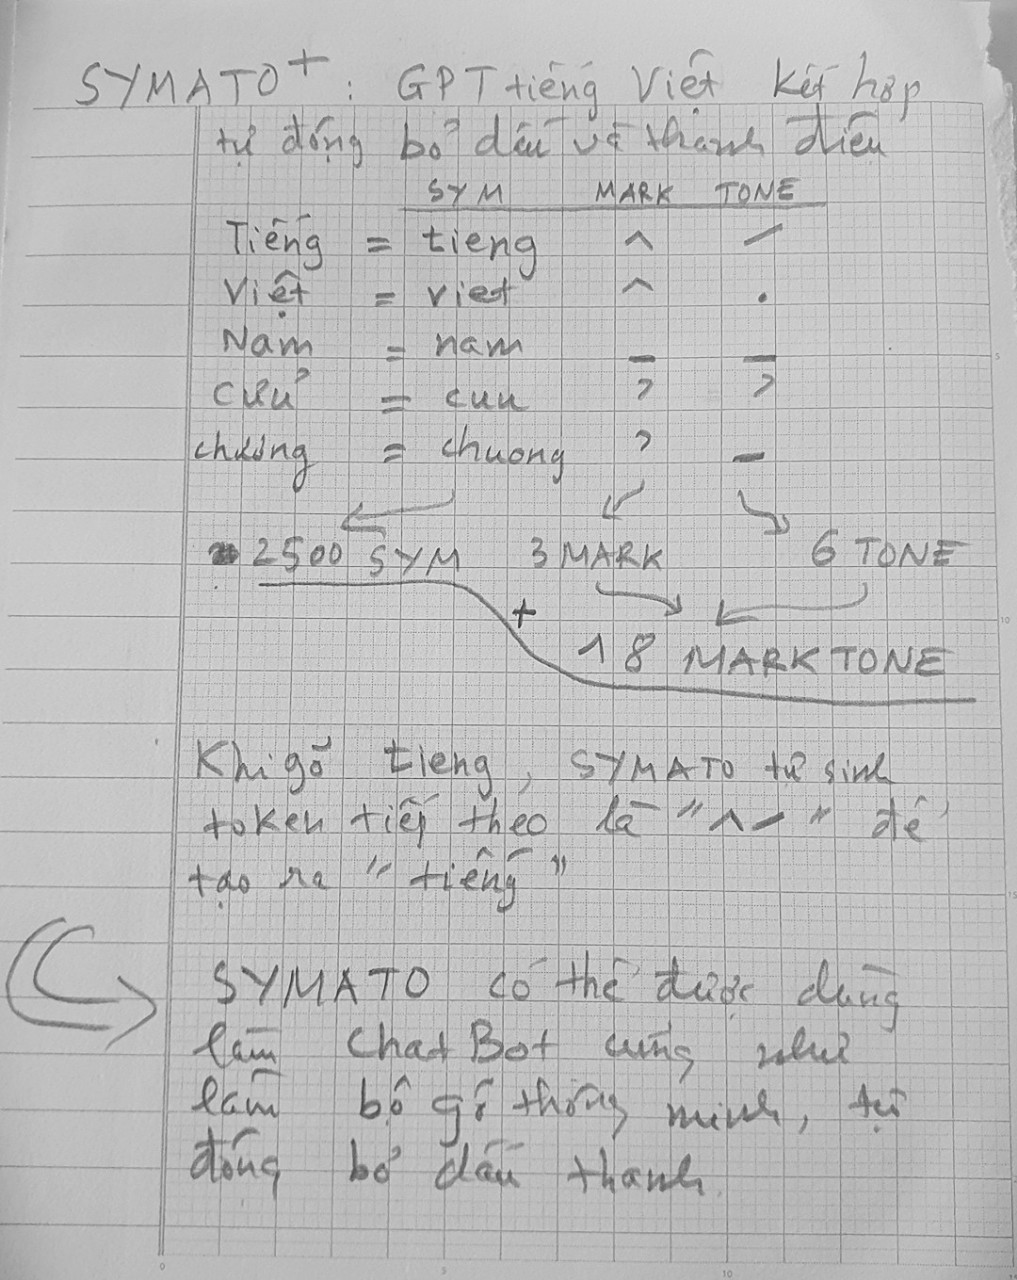 SYMATO+ : GPT tiếng Việt kết hợp
tự động bỏ dấu và thanh điệu
SYM MARK TONE
Tiếng = tieng ^ /
Việt = viet ^ .
Nam = nam _ _
Cửu = cuu ? ?
chương = chuong ? _
2500 SYM 3 MARK 6 TONE
+
18 MARKTONE
Khi gõ tieng, SYMATO tự sinh
token tiếp theo là "^/" để
tạo ra "tiếng"
SYMATO có thể được dùng
làm ChatBot cũng như
làm bộ gõ thông minh, tự
động bỏ dấu thanh.
0 5 10
5
10
15